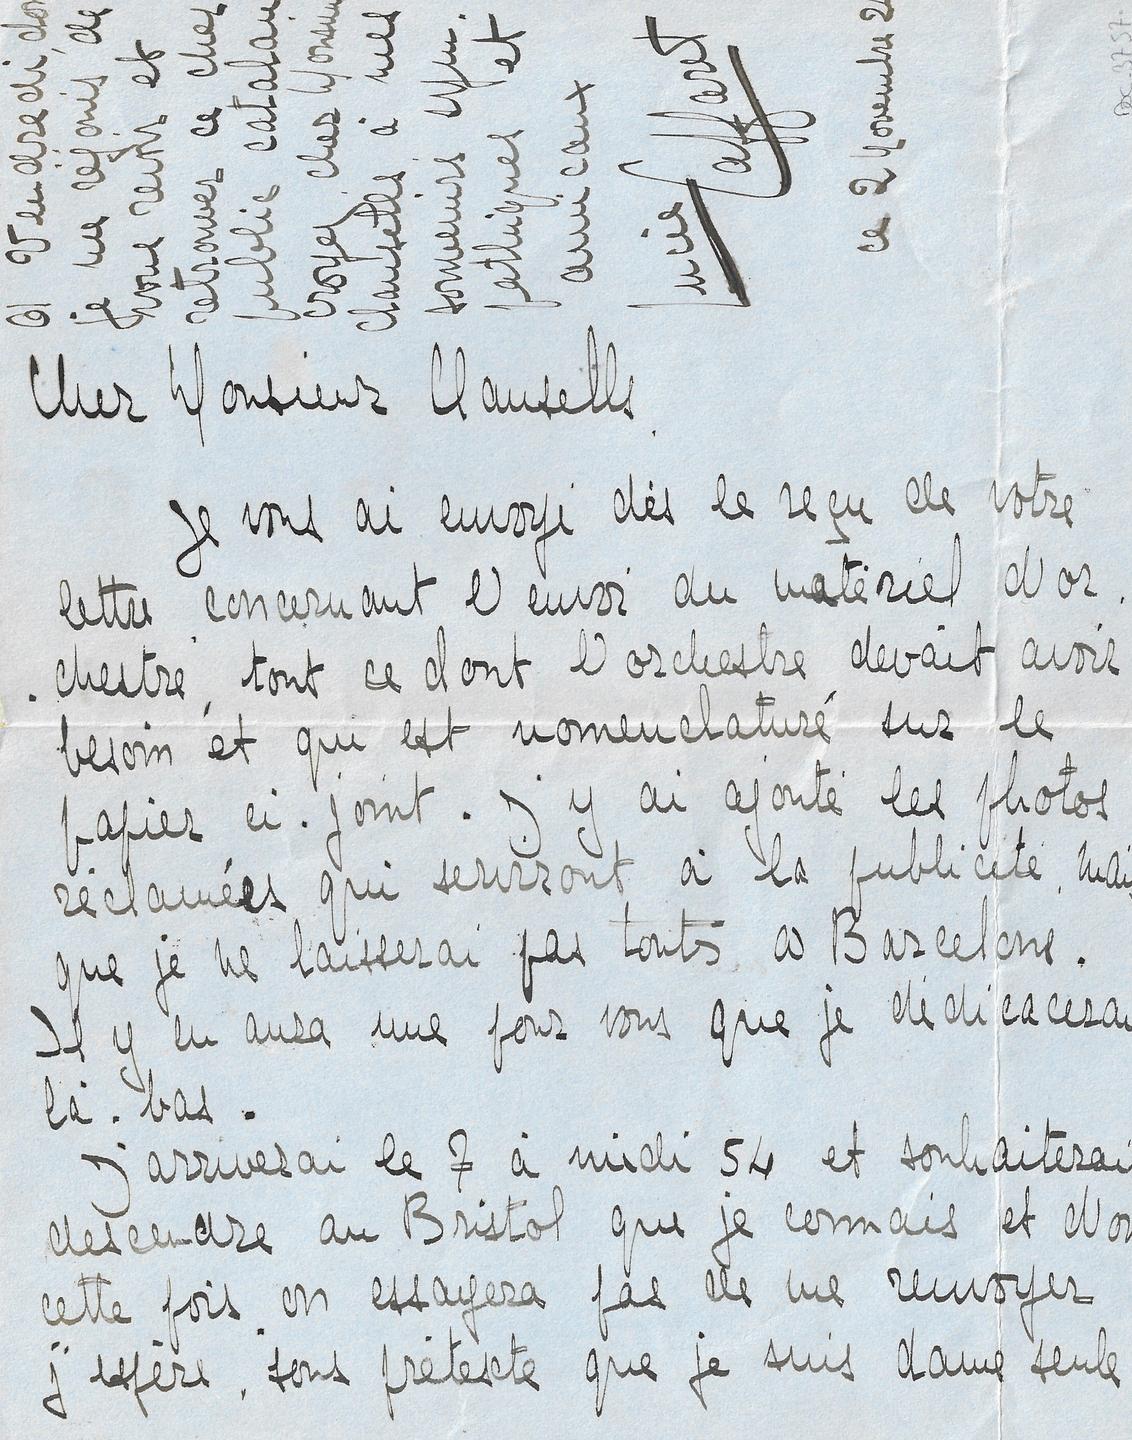 ce 2 Novembre 2
Cher Monsieur Clausells
Je vous ai envoyé dès le reçu de votre
lettre concernant l'envoi du matériel d'or.
chestre, tout ce dont l'orchestre devait avoir
besoin et qui est nomenclaturé sur le
papier ci.joint. J'y ai ajouté les photos
réclamées qui serviront à la publicité, mais
que je ne laisserai pas toutes à Barcelone.
Il y en aura une pour vous que je dédicacerai
là.bas.
J'arriverai le 7 à midi 54 et souhaiterai
descendre au Bristol que je connais et d'où
cette fois, on essayera pas de me renvoyer
j'espère, sous prétexte que je suis dame seule
à Vendredi, donc
je me réjouis de
vous revoir et
retrouver ce cher
public catalan
croyez cher Monsieur
Clausells à mes
souvenirs sym.
pathiques et
amicaux
Lucie Caffaret